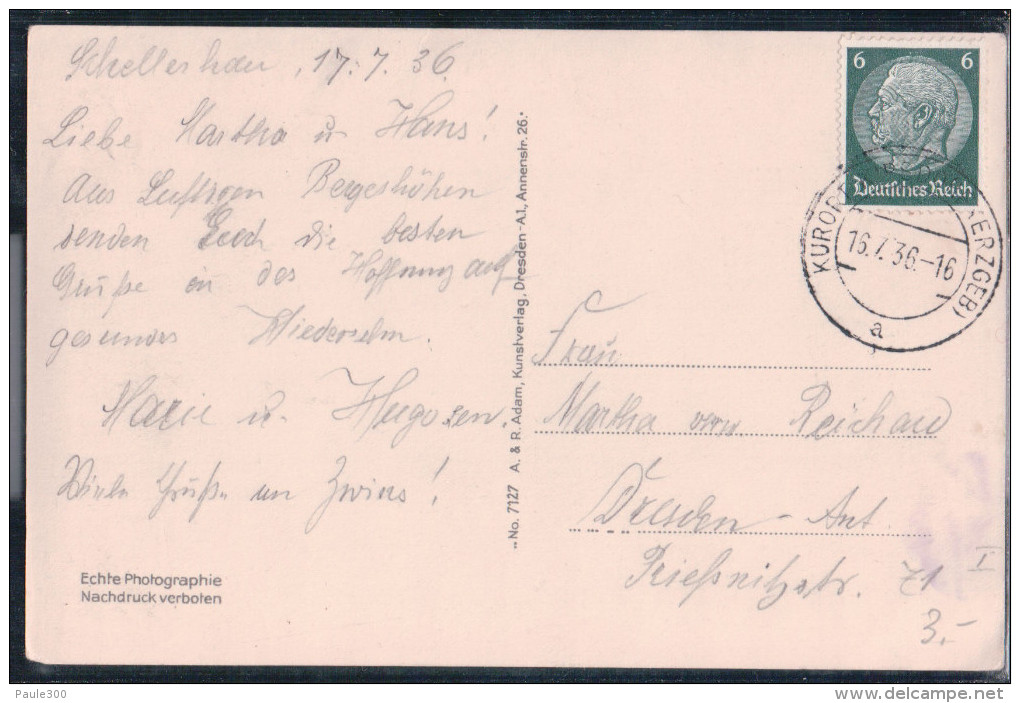 Schellerhau, 17.7.36.
Liebe Martha u. Hans!
Aus Luftigen Bergeshöhen
senden Euch die besten
Grüße in der Hoffnung auf
gesundes Wiedersehn.
Marie u. Hugo
Viele Grüße an
Echte Photographie
Nachdruck verboten
No. 7127 A. & R. Adam, Kunstverlag, Dresden-A.1, Annenstr. 26.
6 6
Deutsches Reich
KURORT ERZGEB)
16.7.36.-16
a
Frau
Martha vom Reichau
Dresden-
Prießnitzstr. 71
I
3.-
Paule300
www.delcampe.net